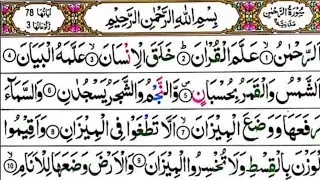 سُوْرَةُ الرَّحْمٰنِ
بِسْمِ اللّٰهِ الرَّحْمٰنِ الرَّحِيْمِ
اٰيَاتُهَا 78
رُكُوْعَاتُهَا 3
اَلرَّحْمٰنُ ۝1 عَلَّمَ الْقُرْاٰنَ ۝2 خَلَقَ الْاِنْسَانَ ۝3 عَلَّمَهُ الْبَيَانَ ۝4
اَلشَّمْسُ وَالْقَمَرُ بِحُسْبَانٍ ۝5 وَّالنَّجْمُ وَالشَّجَرُ يَسْجُدٰنِ ۝6 وَالسَّمَآءَ
رَفَعَهَا وَوَضَعَ الْمِيْزَانَ ۝7 اَلَّا تَطْغَوْا فِي الْمِيْزَانِ ۝8 وَاَقِيْمُوا
الْوَزْنَ بِالْقِسْطِ وَلَا تُخْسِرُوا الْمِيْزَانَ ۝9 وَالْاَرْضَ وَضَعَهَا لِلْاَنَامِ ۝10